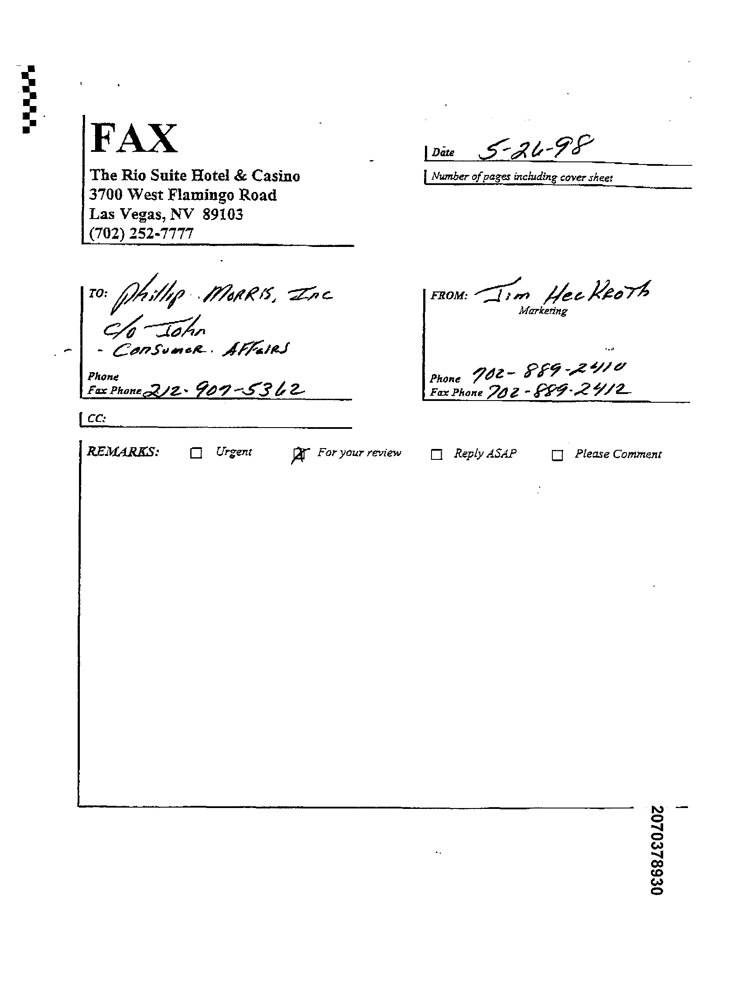 FAX
The Rio Suite Hotel & Casino
3700 West Flamingo Road
Las Vegas, NV 89103
(702) 252-7777
Date 5-26-98
Number of pages including cover sheet
TO: Phillip MORRIS, Inc
c/o John
- Consumer. AFFaIRS
Phone
Fax Phone 212-907-5362
FROM: Jim HecKRoTh
Marketing
Phone 702-889-2410
Fax Phone 702-889-2412
CC:
REMARKS: Urgent For your review Reply ASAP Please Comment
2070378930